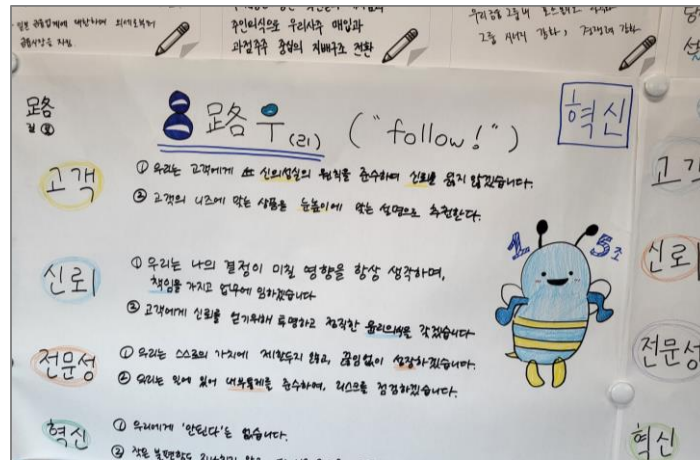 주인의식으로 우리사주 매입과
과점주주 중심의 지배구조 전환
路
길 로
路 우(리) ("follow!")
혁신
고객
① 우리는 고객에게 신의성실의 원칙을 준수하며 신뢰를 잃지 않겠습니다.
② 고객의 니즈에 맞는 상품을 눈높이에 맞는 설명으로 추천한다.
15조
신뢰
① 우리는 나의 결정이 미칠 영향을 항상 생각하며,
책임을 가지고 업무에 임하겠습니다
② 고객에게 신뢰를 얻기위해 투명하고 정직한 윤리의식을 갖겠습니다
전문성
① 우리는 스스로의 가치에 제한두지 않고, 끊임없이 성장하겠습니다.
② 우리는 일에 있어 내부통제를 준수하며, 리스크를 점검하겠습니다.
혁신
① 우리에게 '안된다'는 없습니다.
② 작은
고객
신뢰
전문성
혁신